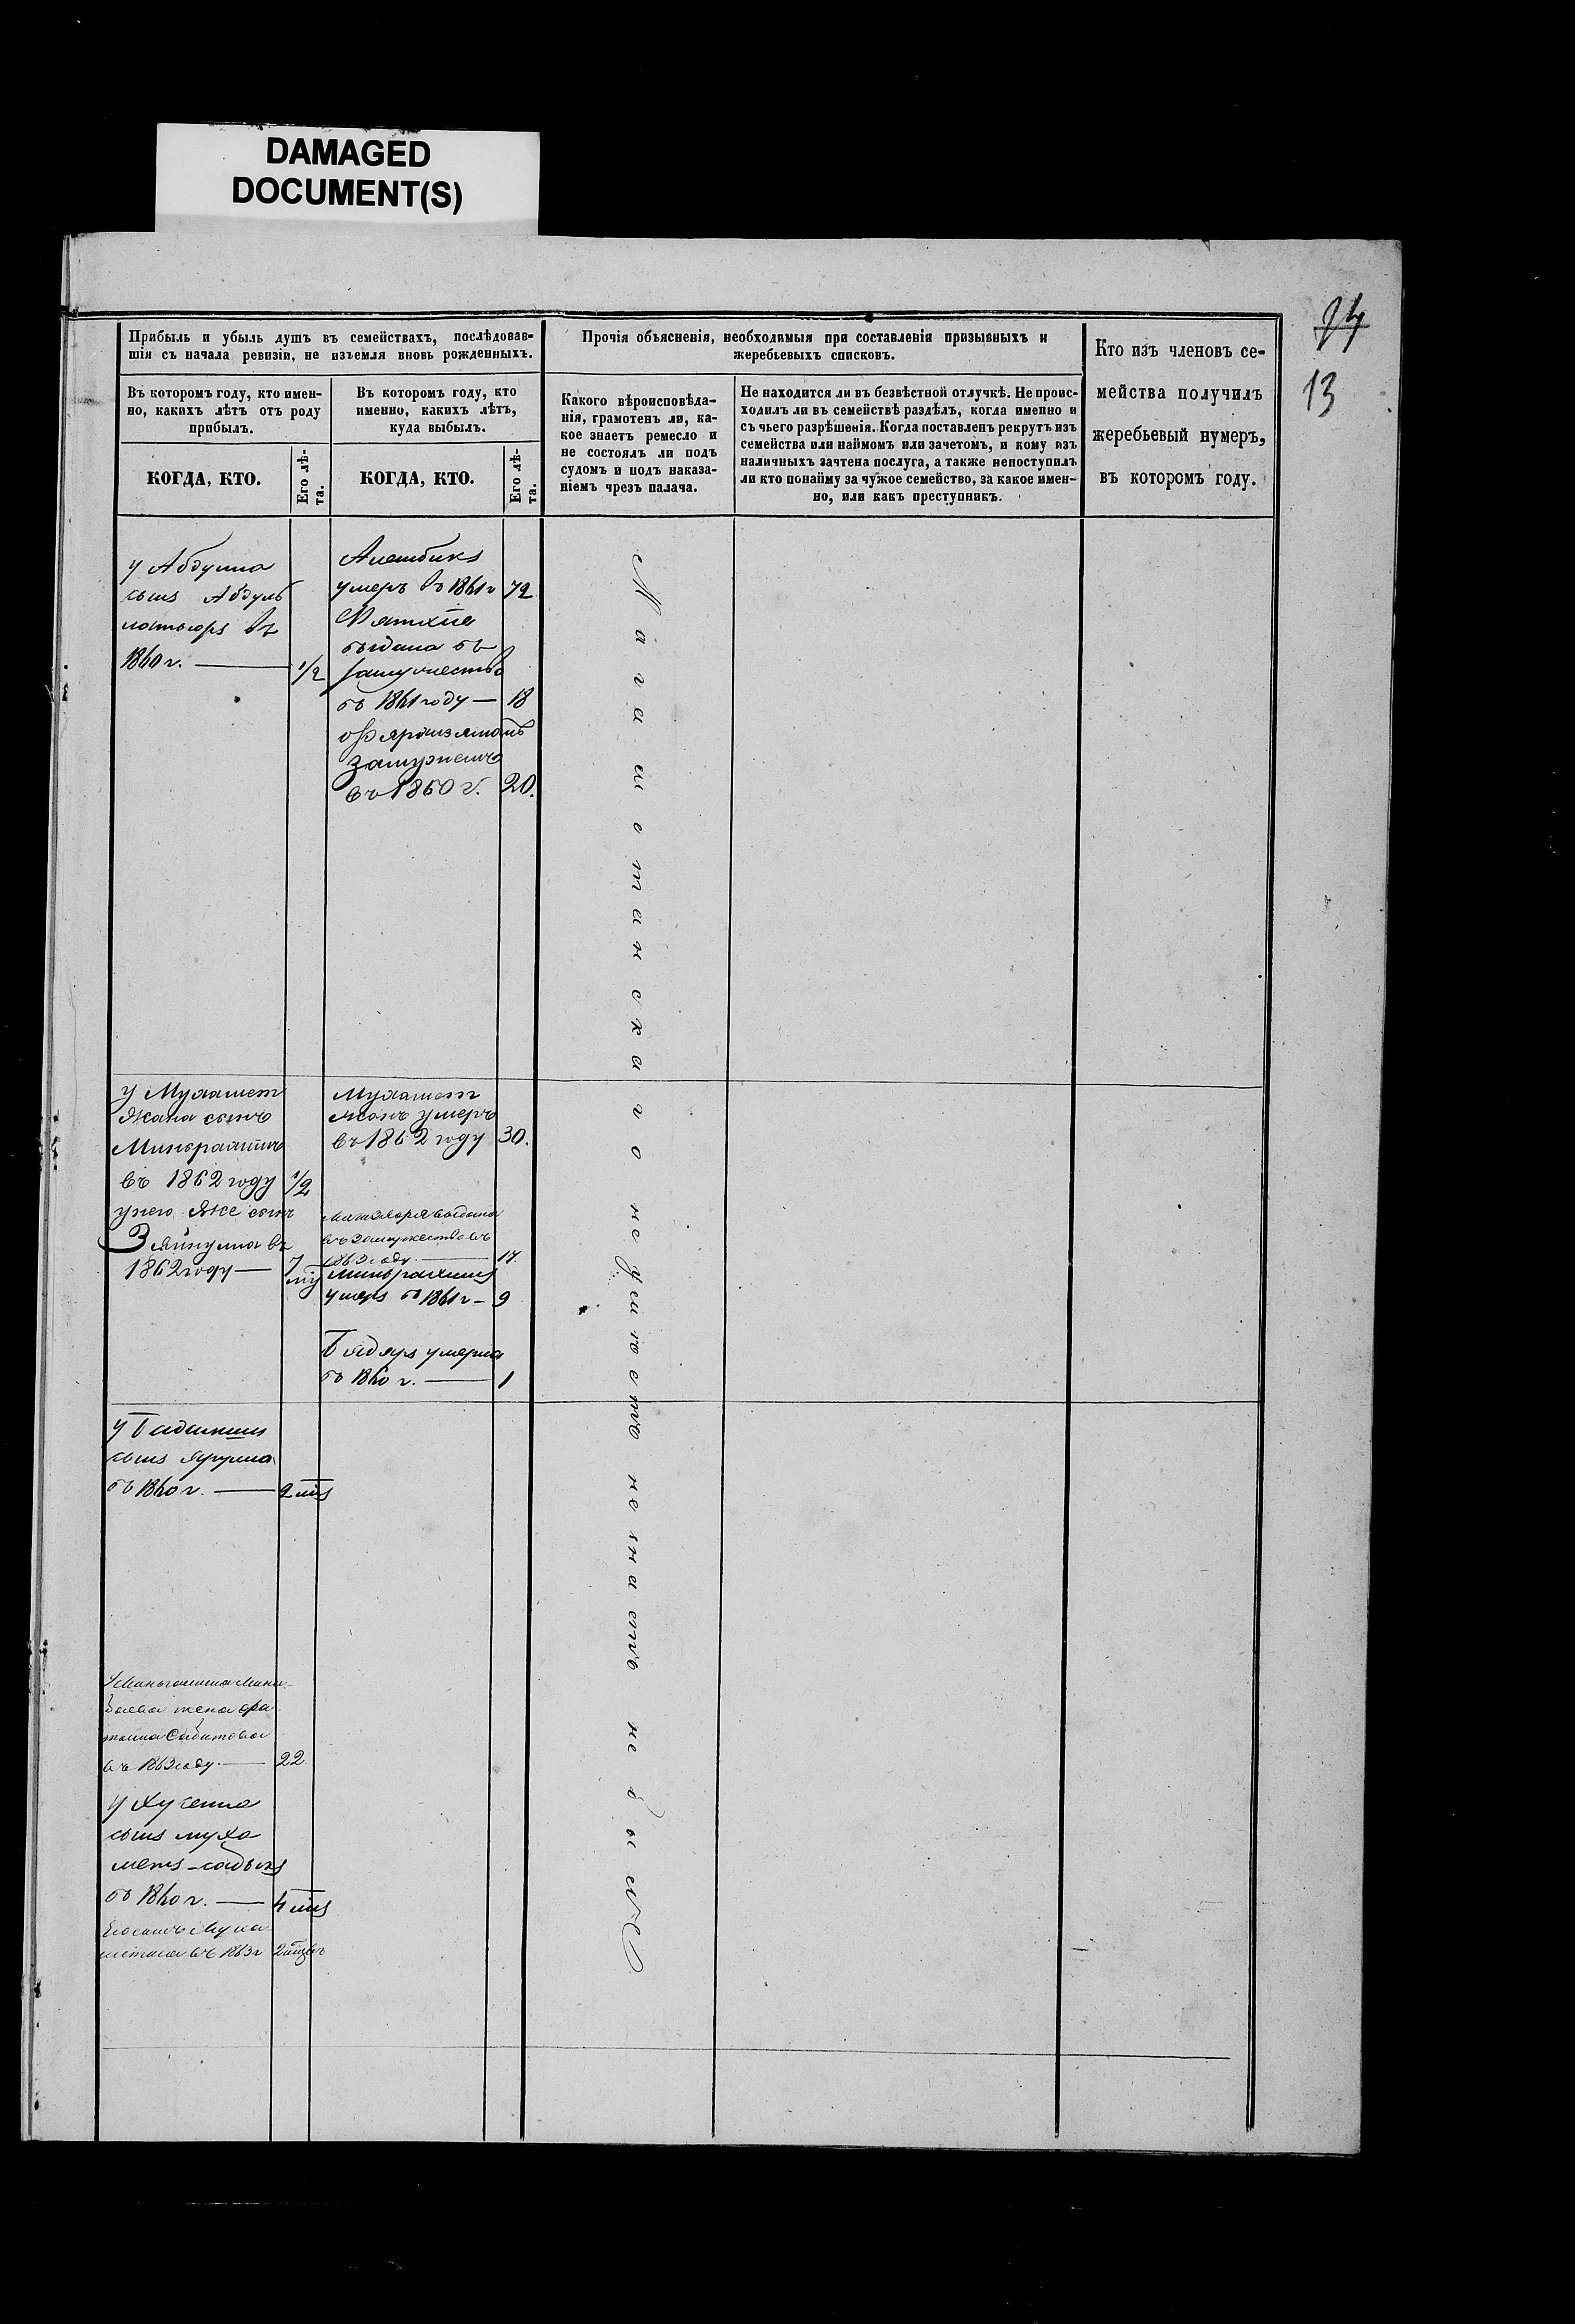 DAMAGED
DOCUMENT(S)
13
Прибыль и убыль душъ въ семействахъ, послѣдовав-
шія съ начала ревизіи, не изъемля вновь рожденныхъ.
Прочія объясненія, необходимыя при составленіи призывныхъ и
жеребьевыхъ списковъ.
Кто изъ членовъ се-
мейства получилъ
жеребьевый нумеръ,
въ которомъ году.
Въ которомъ году, кто имен-
но, какихъ лѣтъ отъ роду
прибылъ.
Въ которомъ году, кто
именно, какихъ лѣтъ,
куда выбылъ.
Какого вѣроисповѣда-
нія, грамотенъ ли, ка-
кое знаетъ ремесло и
не состоялъ ли подъ
судомъ и подъ наказа-
ніемъ чрезъ палача.
Не находится ли въ безвѣстной отлучкѣ. Не проис-
ходилъ ли въ семействѣ раздѣлъ, когда именно и
съ чьего разрѣшенія. Когда поставленъ рекрутъ изъ
семейства или наймомъ или зачетомъ, и кому изъ
наличныхъ зачтена послуга, а также непоступилъ
ли кто понайму за чужое семейство, за какое имен-
но, или какъ преступникъ.
КОГДА, КТО.
Его лѣ-
та.
КОГДА, КТО.
Его лѣ-
та.
у Абдулла
сынъ Абдулъ
въ
1860 г. 1/2
умеръ въ 1861 г 72
выдана въ
замужество
въ 1861 году 18
замужемъ
въ 1860 г. 20.
у Мухамет
Жана сынъ
въ 1862 году 1/2
у него же сынъ
Зяйнулла въ
1862 году 7
Мухамет
жанъ умеръ
въ 1862 году 30.
выдана
въ замужество въ
1863 году 17
умеръ въ 1861 г 9
Бадяръ умерла
въ 1860 г. 1
у
сынъ
въ 1860 г. 2
жена
въ 1863 году 22
у Хусеина
сынъ муха
метъ-садыкъ
въ 1860 г. 4
въ 1863 г 2
Магаметанскаго не умѣетъ не знаетъ не былъ